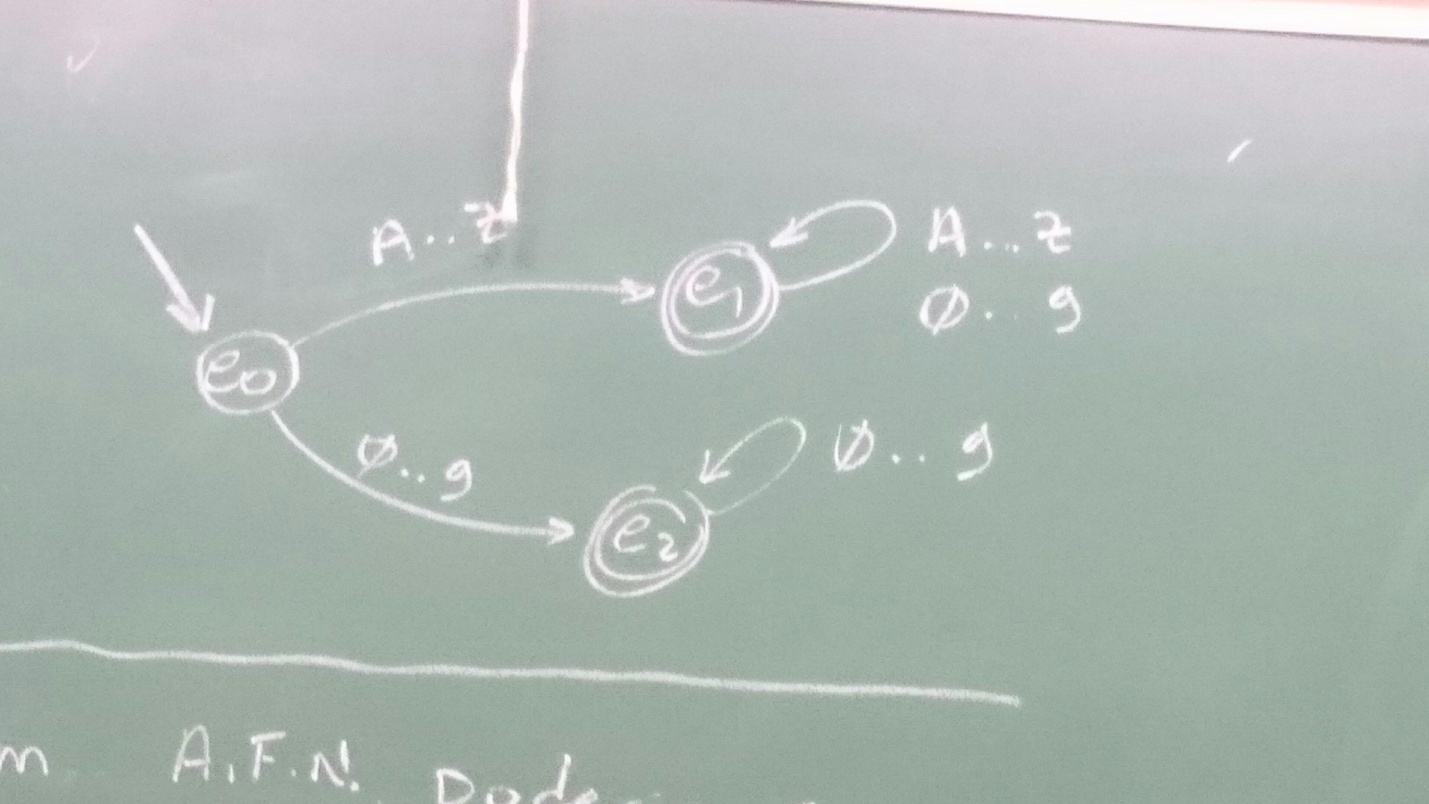 A..Z
e1
A...Z
Ø..9
e0
Ø..9
e2
Ø..9
m A.F.N.